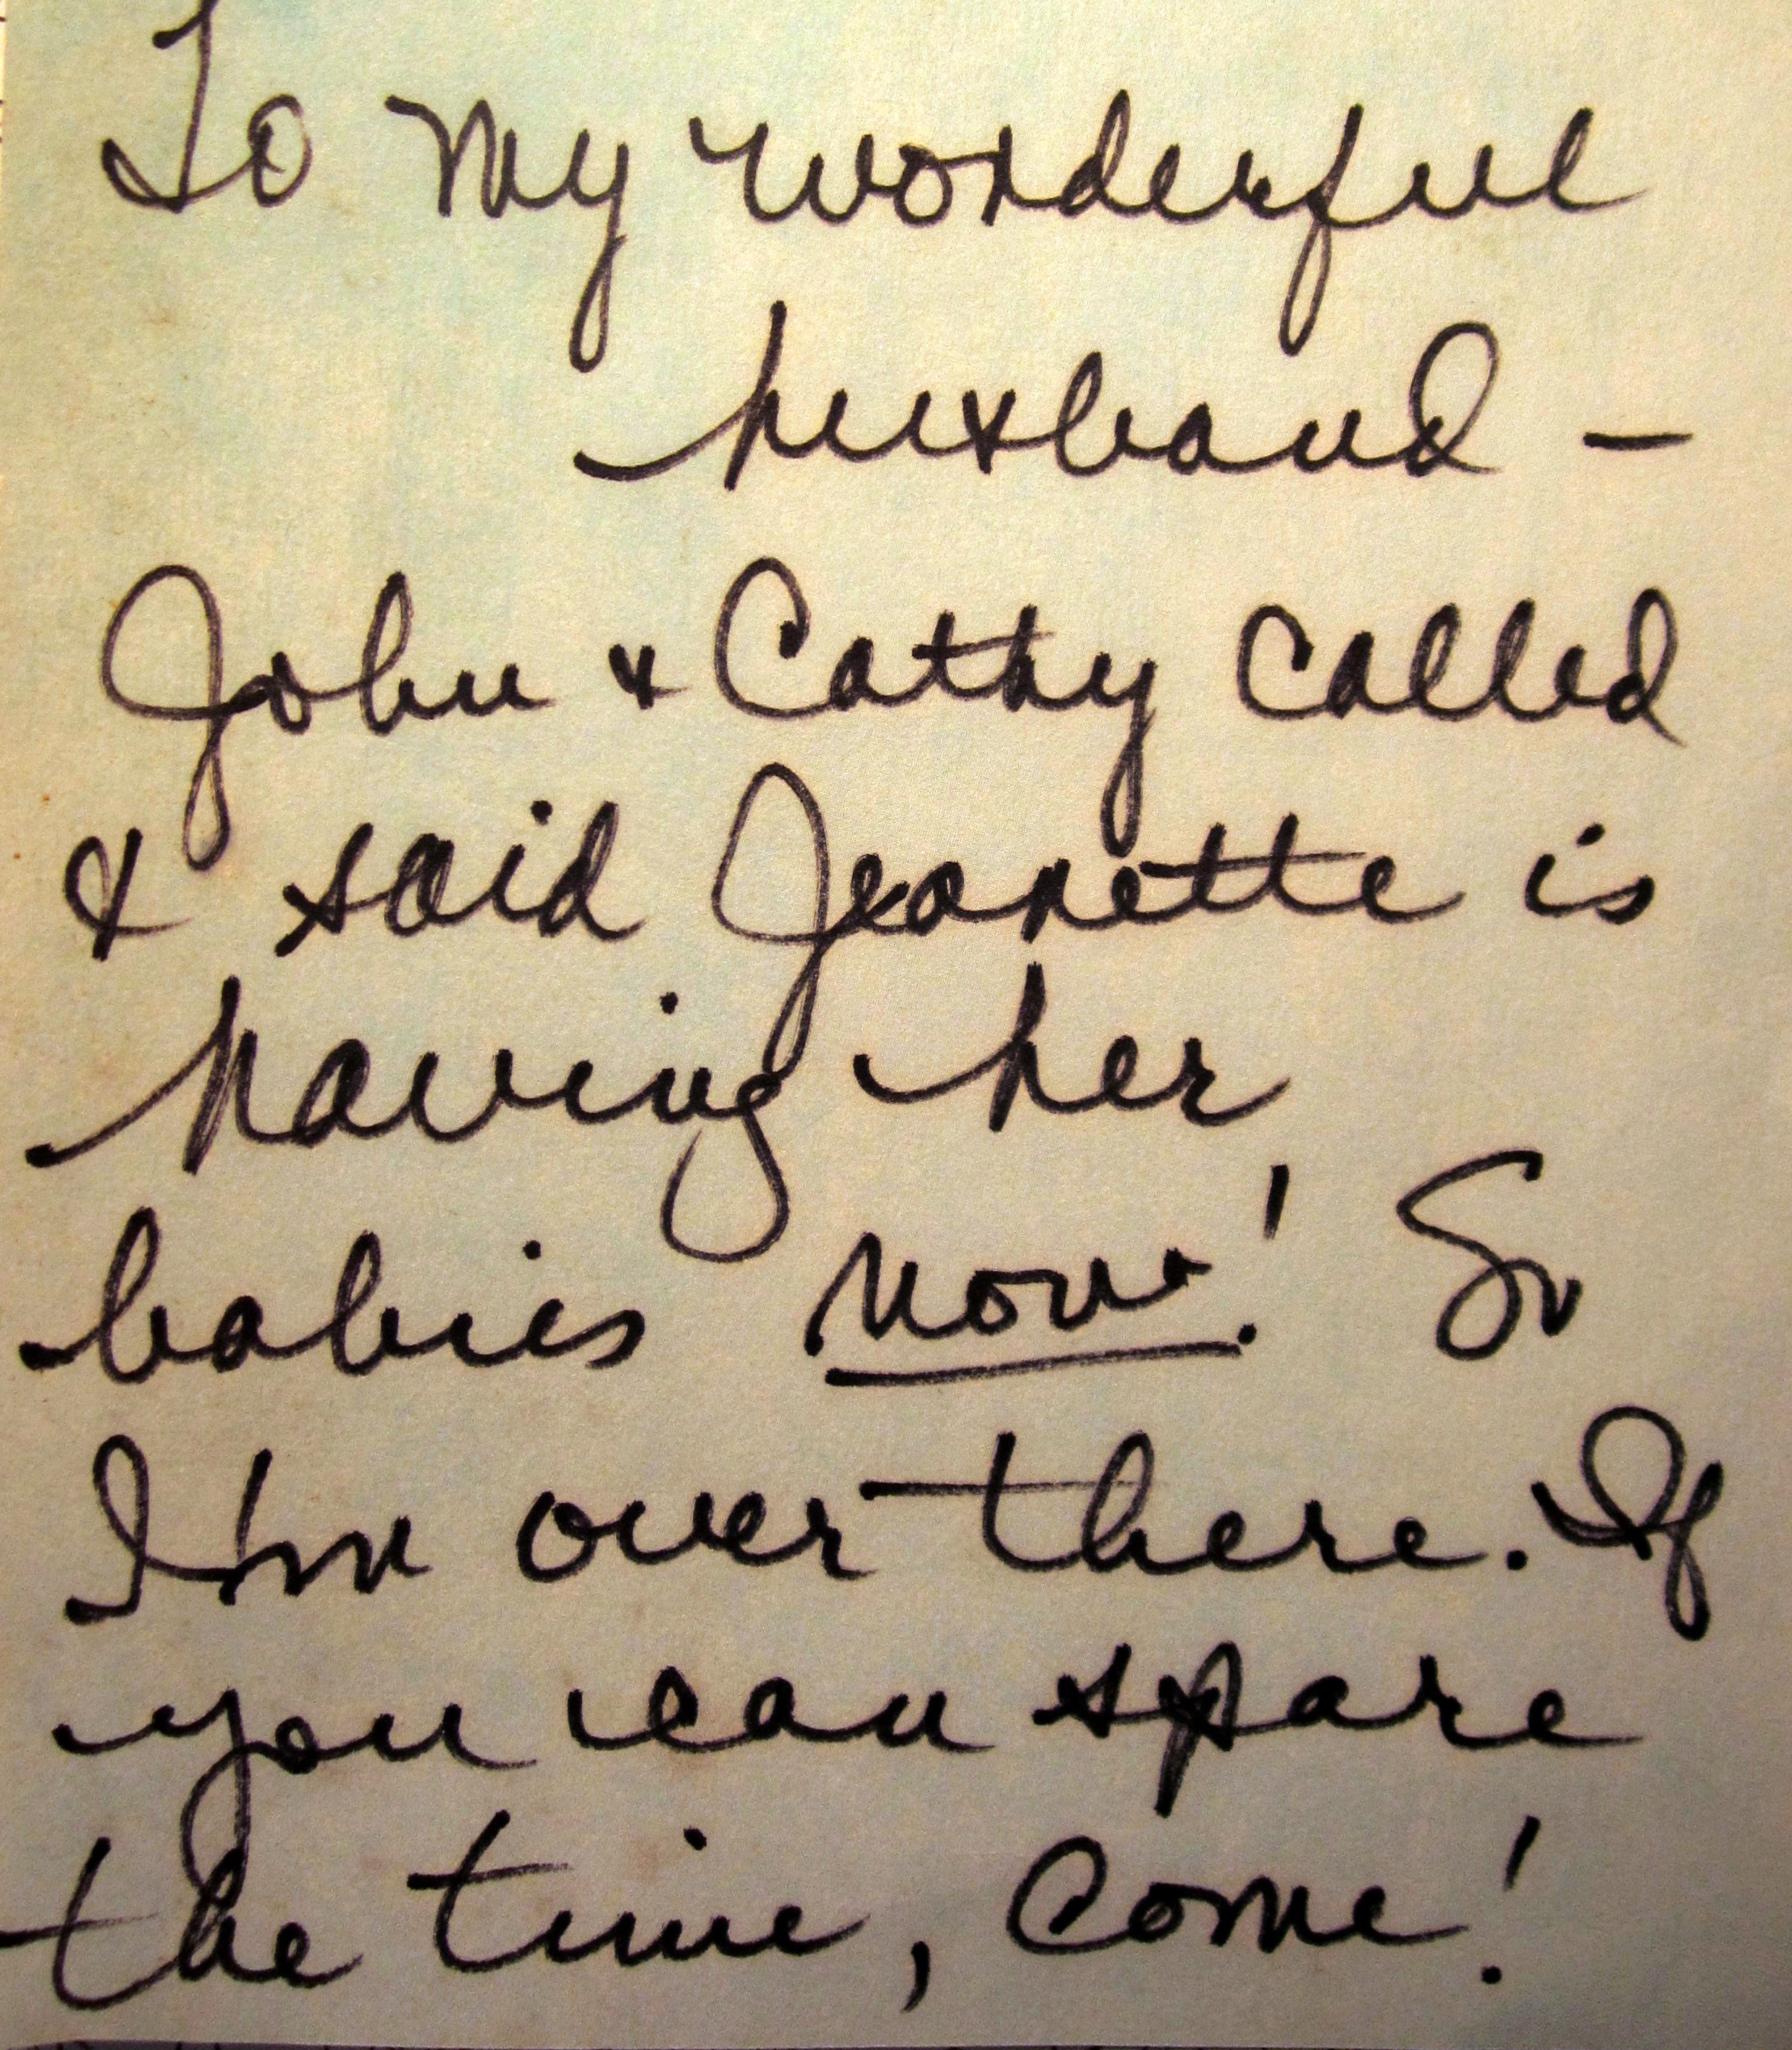 To my wonderful
husband -
John & Cathy called
& said Jeanette is
having her
babies now! So
I'm over there. If
you can spare
the time, come!